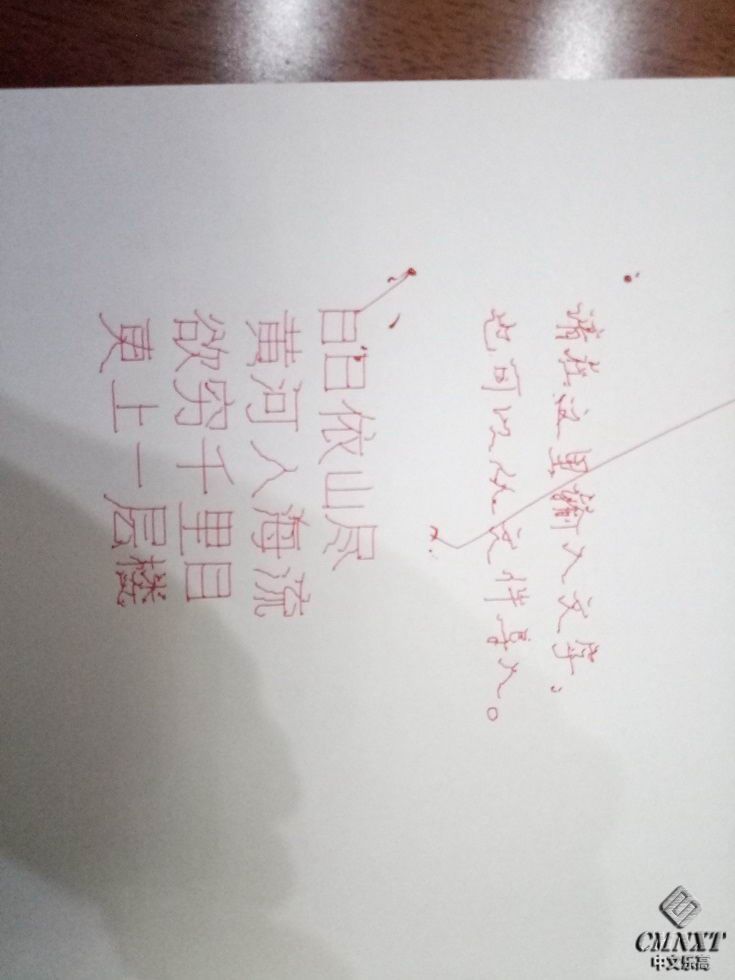 请在这里输入文字,
也可以从文件导入。
白日依山尽
黄河入海流
欲穷千里目
更上一层楼
CMNXT
中文乐高